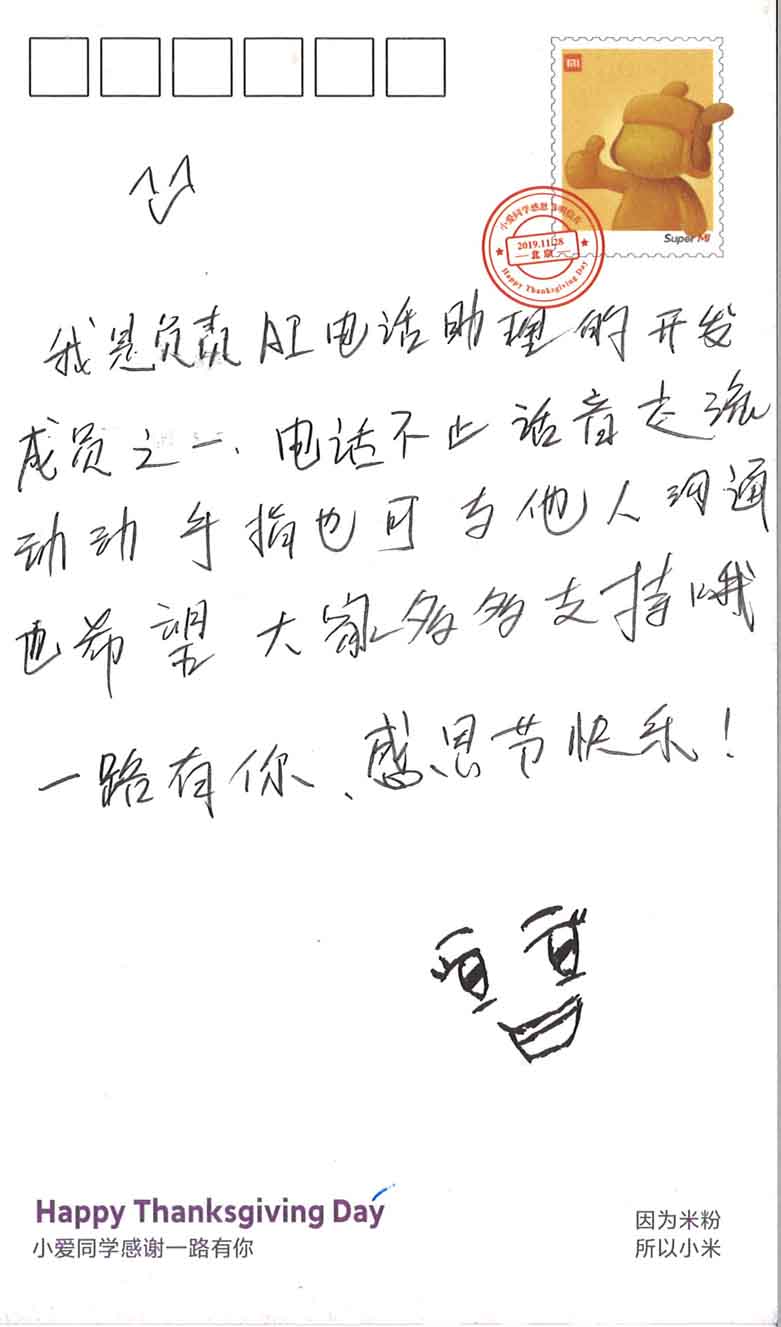 MI
Super MI
小爱同学感恩节明信片
2019.11.28
北京
Happy Thanksgiving Day
我是负责AI电话助理的开发
成员之一、电话不止话音交流
动动手指也可与他人沟通
也希望大家多多支持哦
一路有你、感恩节快乐！
Happy Thanksgiving Day
小爱同学感谢一路有你
因为米粉
所以小米